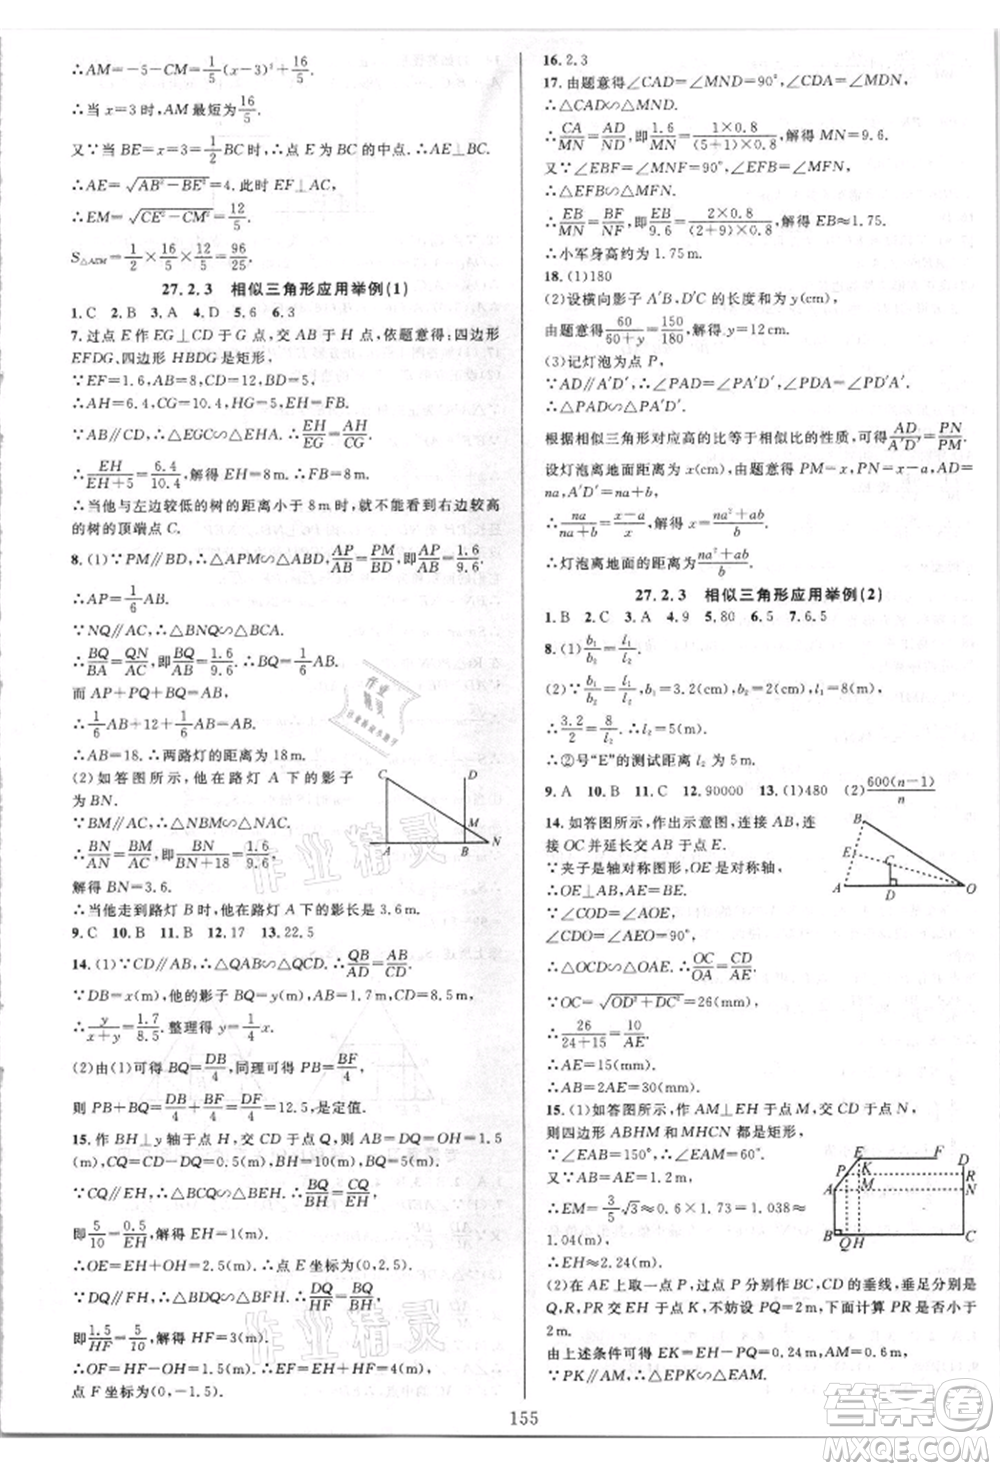 ∴AM=-5-CM=1/5(x-3)²+16/5.
∴当 x=3 时,AM 最短为16/5.
又∵当 BE=x=3=1/2BC 时,∴点 E 为 BC 的中点.∴AE⊥BC.
∴AE=√(AB²-BE²)=4.此时 EF⊥AC,
∴EM=√(CE²-CM²)=12/5.
S△AEM=1/2×16/5×12/5=96/25.
27.2.3 相似三角形应用举例(1)
1.C 2.B 3.A 4.D 5.6 6.3
7.过点 E 作 EG⊥CD 于 G,交 AB 于 H 点,依题意得:四边形
EFDG、四边形 HBDG 是矩形,
∵EF=1.6,AB=8,CD=12,BD=5,
∴AH=6.4,CG=10.4,HG=5,EH=FB.
∵AB∥CD,∴△EGC∽△EHA.∴EH/EG=AH/CG.
∴EH/(EH+5)=6.4/10.4,解得 EH=8 m.∴FB=8 m.
∴当他与左边较低的树的距离小于 8 m 时,就不能看到右边较高
的树的顶端点 C.
8.(1)∵PM∥BD,∴△APM∽△ABD,AP/AB=PM/BD,即AP/AB=1.6/9.6.
∴AP=1/6AB.
∵NQ∥AC,∴△BNQ∽△BCA.
∴BQ/BA=QN/AC,即BQ/BA=1.6/9.6.∴BQ=1/6AB.
而 AP+PQ+BQ=AB,
∴1/6AB+12+1/6AB=AB.
∴AB=18.∴两路灯的距离为 18 m.
(2)如答图所示,他在路灯 A 下的影子
为 BN.
∵BM∥AC,∴△NBM∽△NAC.
∴BN/AN=BM/AC,即BN/(BN+18)=1.6/9.6.
解得 BN=3.6.
∴当他走到路灯 B 时,他在路灯 A 下的影长是 3.6 m.
C D M A B N
9.C 10.B 11.B 12.17 13.22.5
14.(1)∵CD∥AB,∴△QAB∽△QCD.∴QB/AD=AB/CD.
∵DB=x(m),他的影子 BQ=y(m),AB=1.7 m,CD=8.5 m,
∴y/(x+y)=1.7/8.5.整理得 y=1/4x.
(2)由(1)可得 BQ=DB/4,同理可得 PB=BF/4,
则 PB+BQ=DB/4+BF/4=DF/4=12.5,是定值.
15.作 BH⊥y 轴于点 H,交 CD 于点 Q,则 AB=CD=OH=1.5
(m),BQ=BD=5(m),CQ=0.5(m),BH=10(m).
∵CQ∥EH,∴△BCQ∽△BEH.∴BQ/BH=CQ/EH,
即5/10=0.5/EH,∴EH=1(m).
∴OE=OH+EH=2.5(m).∴点 E 坐标为(0,2.5).
∵DQ∥FH,∴△BDQ∽△BFH.∴DQ/HF=BQ/BH,
即1.5/HF=5/10,解得 HF=3(m).
∴OF=HF-OH=1.5(m).∴EF=OE+OF=4(m).
点 F 坐标为(0,-1.5).
16.2.3
17.由题意得∠CAD=∠MND=90°,∠CDA=∠MDN,
∴△CAD∽△MND.
∴CA/MN=AD/ND,即1.6/MN=(1×0.8)/((5+1)×0.8),解得 MN=9.6.
又∵∠EBF=∠MNF=90°,∠EFB=∠MFN,
∴△EFB∽△MFN.
∴EB/MN=BF/NF,即EB/9.6=(2×0.8)/((2+9)×0.8),解得 EB≈1.75.
∴小军身高约为 1.75 m.
18.(1)180
(2)设横向影子 A′B′、D′C′的长度和为 y(cm),
由题意得60/(60+y)=150/180,解得 y=12 cm.
(3)记灯泡为点 P,
∵AD∥A′D′,∴∠PAD=∠PA′D′,∠PDA=∠PD′A′.
∴△PAD∽△PA′D′.
根据相似三角形对应高的比等于相似比的性质,可得AD/A′D′=PN/PM.
设灯泡离地面距离为 x(cm),由题意得 PM=x,PN=x-a,AD=
na,A′D′=na+b,
∴na/(na+b)=(x-a)/x,解得 x=(na²+ab)/b.
∴灯泡离地面的距离为(na²+ab)/b.
27.2.3 相似三角形应用举例(2)
1.B 2.C 3.A 4.9 5.80 6.5 7.6.5
8.(1)b₁/b₂=l₁/l₂
(2)∵b₁/b₂=l₁/l₂,b₁=3.2(cm),b₂=2(cm),l₁=8(m),
∴3.2/2=8/l₂.∴l₂=5(m).
∴②号“E”的测试距离 l₂ 为 5 m.
9.A 10.B 11.C 12.90000 13.(1)480 (2)600(n-1)/n
14.如答图所示,作出示意图,连接 AB,连
接 OC 并延长交 AB 于点 E.
∵夹子是轴对称图形,OE 是对称轴,
∴OE⊥AB,AE=BE.
∵∠COD=∠AOE,
∠CDO=∠AEO=90°,
∴△OCD∽△OAE.∴OC/OA=CD/AE.
∵OC=√(OD²+DC²)=26(mm),
∴26/(24+15)=10/AE.
∴AE=15(mm).
∴AB=2AE=30(mm).
B E C A D O
15.(1)如答图所示,作 AM⊥EH 于点 M,交 CD 于点 N,
则四边形 ABHM 和 MHCN 都是矩形,
∵∠EAB=150°,
∴∠EAM=60°.
又∵AB=AE=1.2 m,
∴EM=3/5√3≈0.6×1.73=1.038≈
1.04(m).
∴EH≈2.24(m).
E F P K R A M N B Q H C D
(2)在 AE 上取一点 P,过点 P 分别作 BC、CD 的垂线,垂足分别是
Q,R,PR 交 EH 于点 K,不妨设 PQ=2(m),下面计算 PR 是否小于
2 m.
由上述条件可得 EK=EH-PQ=0.24(m),AM=0.6(m).
∵PK∥AM,∴△EPK∽△EAM.
155
答案圈
MXQE.COM
作业精灵
作业精灵